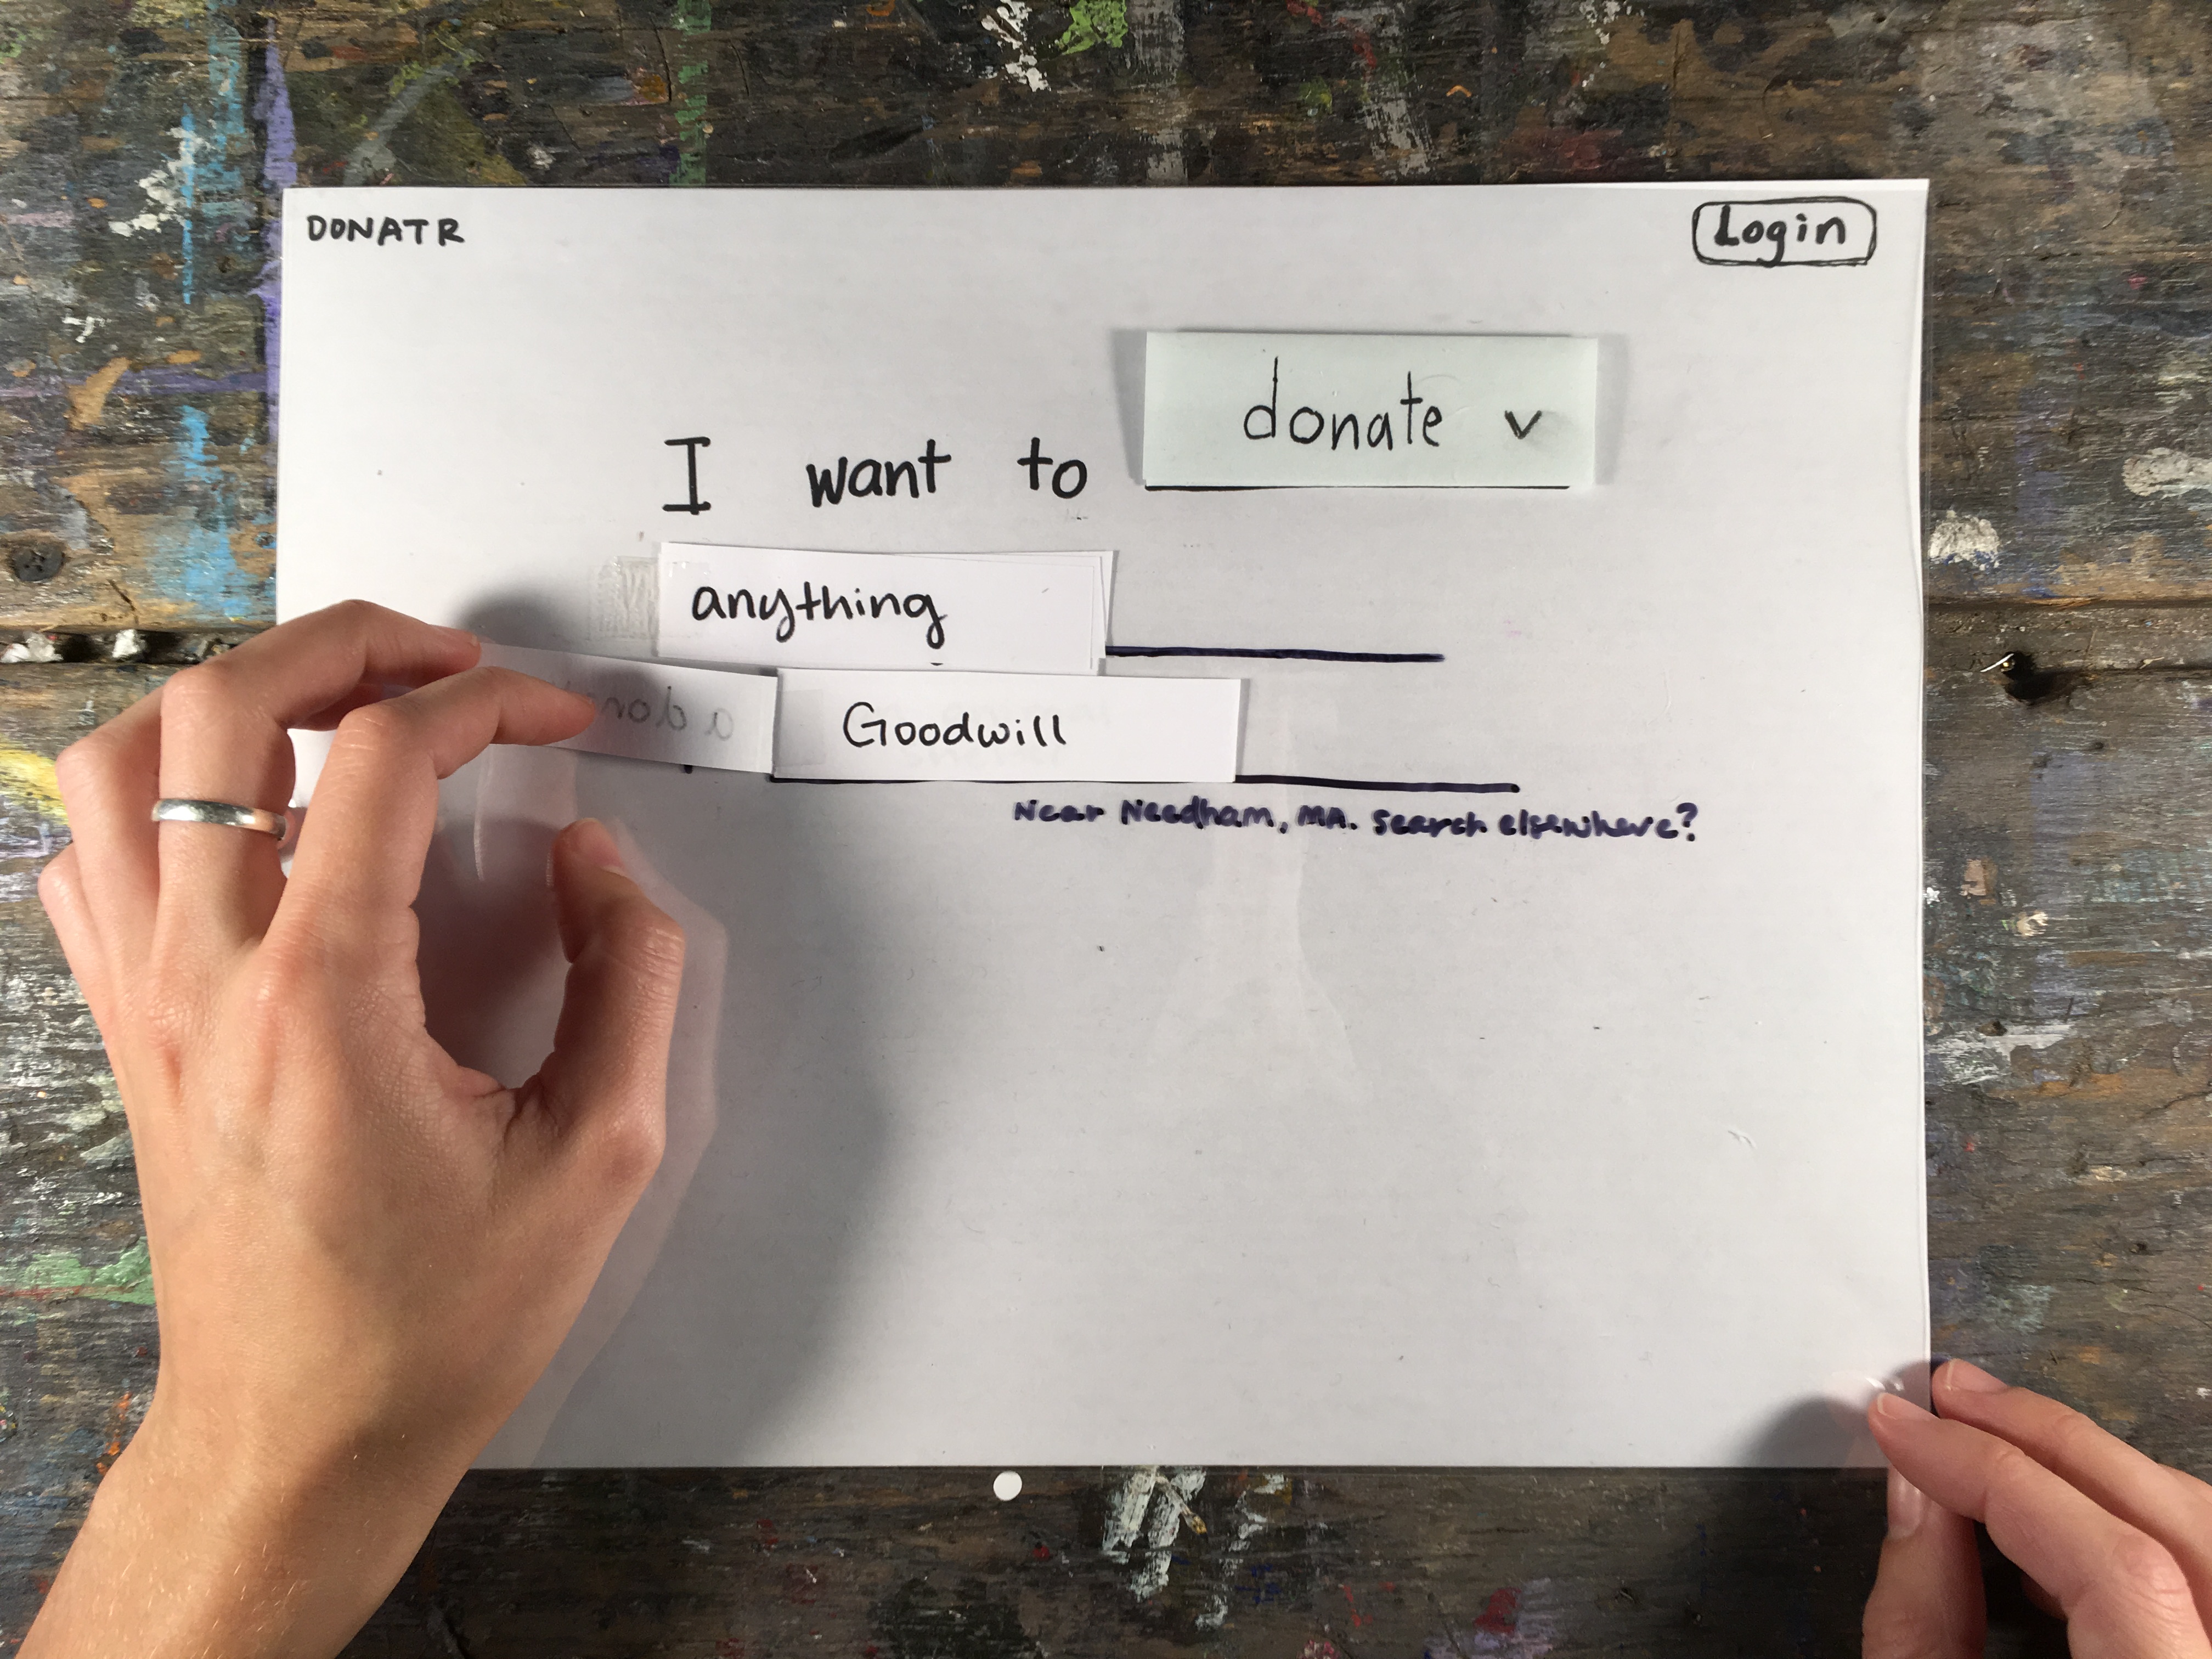 DONATR
Login
I want to donate v
anything
Goodwill
Near Needham, MA. Search elsewhere?